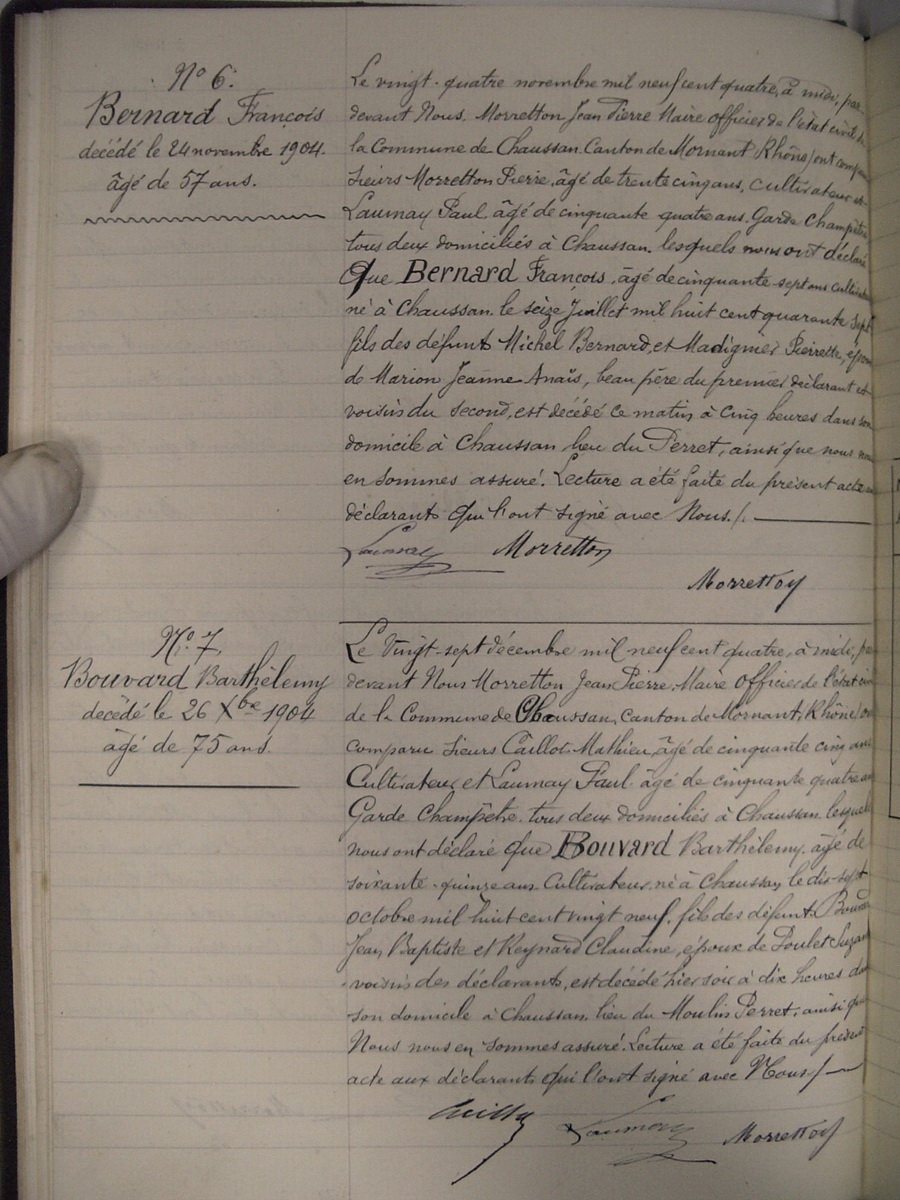 N° 6.
Bernard François
décédé le 24 novembre 1904.
âgé de 57 ans.
Le vingt-quatre novembre mil neuf cent quatre, à midi, par-
devant Nous, Morretton Jean Pierre Maire officier de l'état civil de
la Commune de Chaussan, Canton de Mornant (Rhône) ont comparu
Sieurs Morretton Pierre, âgé de trente cinq ans, cultivateur et
Launay Paul, âgé de cinquante quatre ans, Garde Champêtre
tous deux domiciliés à Chaussan, lesquels nous ont déclaré
que Bernard François, âgé de cinquante-sept ans cultivateur
né à Chaussan le seize Juillet mil huit cent quarante sept
fils des défunts Michel Bernard, et Madignier Pierrette, époux
de Marion Jeanne Anaïs, beau père du premier déclarant et
voisin du second, est décédé ce matin à cinq heures dans son
domicile à Chaussan lieu du Perret, ainsi que nous nous
en sommes assuré. Lecture a été faite du présent acte aux
déclarants qui l'ont signé avec Nous./.
Launay Morretton
Morretton
N° 7.
Bouvard Barthélemy
décédé le 26 Xbre 1904
âgé de 75 ans.
Le Vingt-sept décembre mil neuf cent quatre, à midi, par
devant Nous Morretton Jean Pierre, Maire officier de l'état civil
de la Commune de Chaussan, Canton de Mornant (Rhône) ont
comparu Sieurs Caillot Mathieu, âgé de cinquante cinq ans
Cultivateur, et Launay Paul âgé de cinquante quatre ans
Garde Champêtre, tous deux domiciliés à Chaussan, lesquels
nous ont déclaré que Bouvard Barthélemy, âgé de
soixante-quinze ans Cultivateur, né à Chaussan, le dix-sept
octobre mil huit cent vingt neuf, fils des défunts Bouvard
Jean Baptiste et Reynard Claudine, époux de Poulet Suzanne
voisin des déclarants, est décédé hier soir à dix heures dans
son domicile à Chaussan, lieu du Moulin Perret, ainsi que
Nous nous en sommes assuré. Lecture a été faite du présent
acte aux déclarants qui l'ont signé avec Nous./.
Launay Morretton